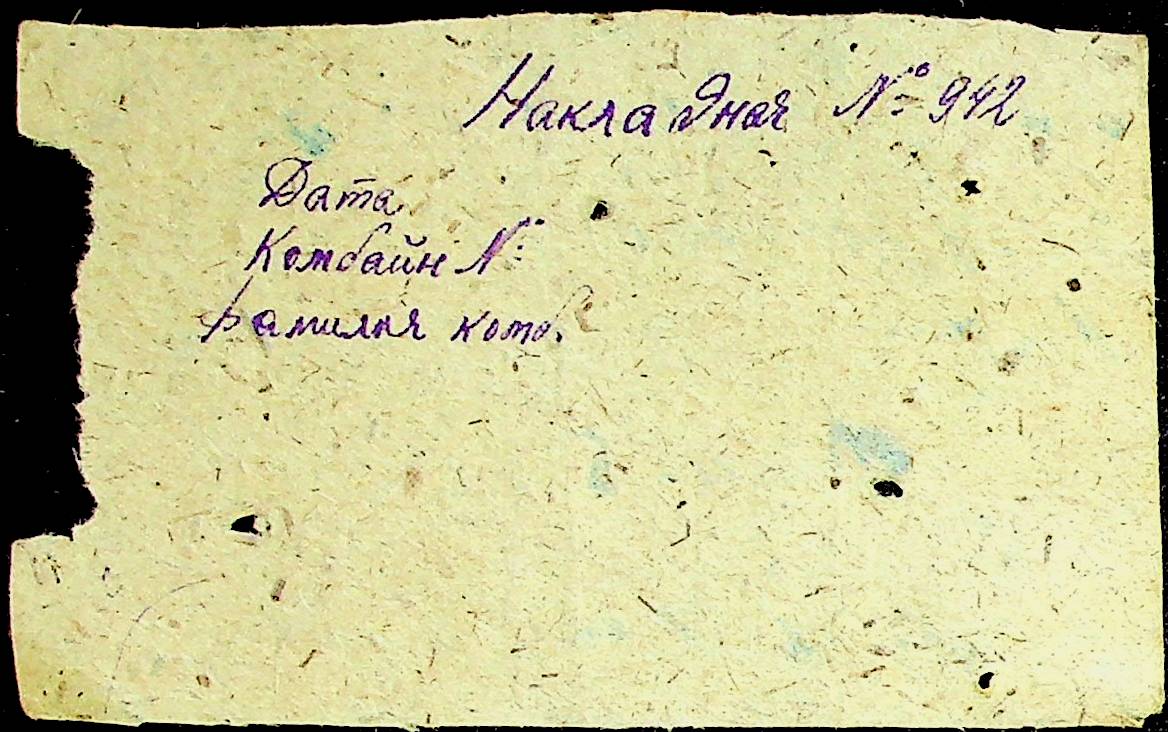 Накладная № 942
Дата
Комбайн №
Фамилия комб.